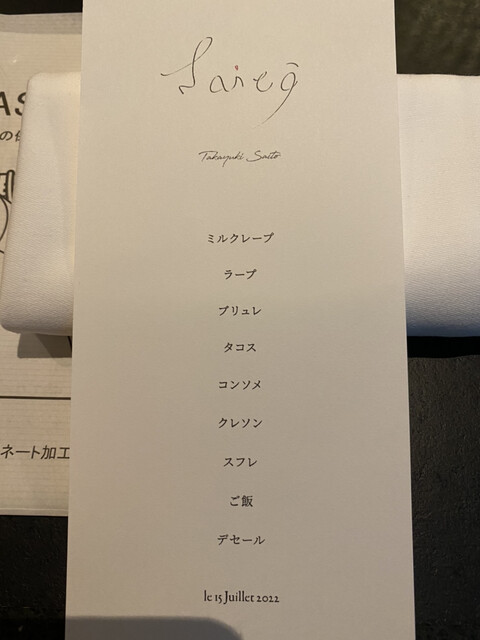 Takayuki Saito
ミルクレープ
ラープ
ブリュレ
タコス
コンソメ
クレソン
スフレ
ご飯
デセール
le 15 Juillet 2022
ネート加工